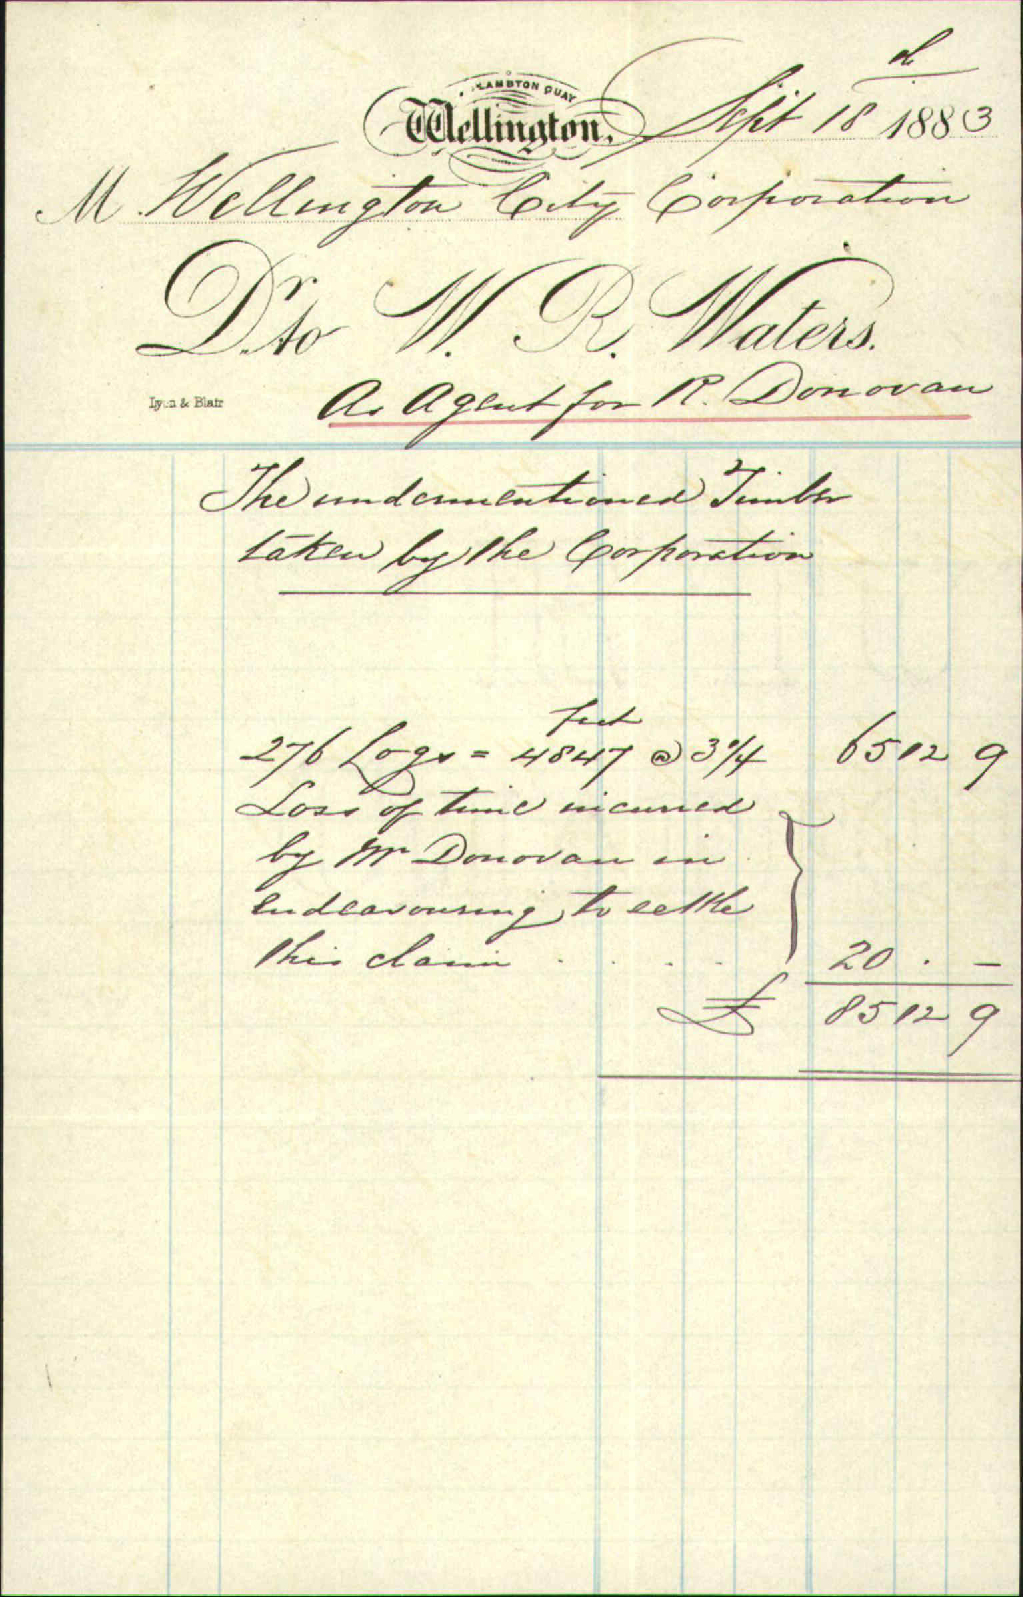 LAMBTON QUAY
Wellington, Sept 18 1883
M Wellington City Corporation
Dr. to W. R. Waters.
Lyon & Blair
As Agent for R. Donovan
The undermentioned Timber
taken by the Corporation
feet
276 Logs = 4847 @ 3/4 65 12 9
Loss of time incurred
by Mr Donovan in
endeavouring to settle
this claim . . . . 20 . –
£ 85 12 9